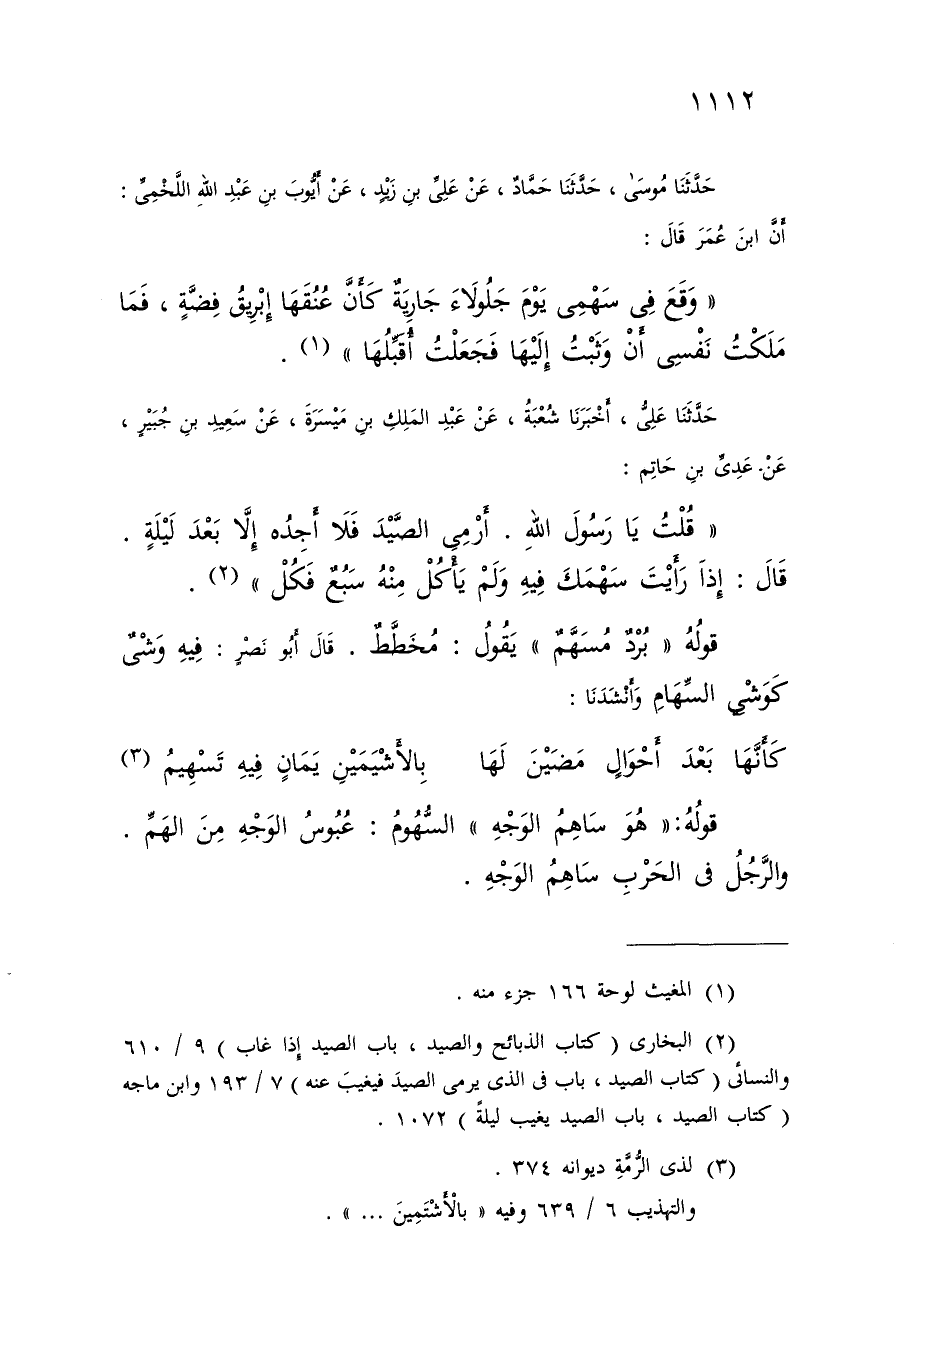 ١١١٢
حَدَّثَنَا مُوسَىٰ ، حَدَّثَنَا حَمَّادٌ ، عَنْ عَلِىِّ بنِ زَيْدٍ ، عَنْ أَيُّوبَ بنِ عَبْدِ اللهِ اللَّخْمِىِّ :
أَنَّ ابنَ عُمَرَ قَالَ :
« وَقَعَ فِى سَهْمِى يَوْمَ جَلُولَاءَ جَارِيَةٌ كَأَنَّ عُنُقَهَا إِبْرِيقُ فِضَّةٍ ، فَمَا
مَلَكْتُ نَفْسِى أَنْ وَثَبْتُ إِلَيْهَا فَجَعَلْتُ أُقَبِّلُهَا » (١) .
حَدَّثَنَا عَلِىُّ ، أَخْبَرَنَا شُعْبَةُ ، عَنْ عَبْدِ المَلِكِ بنِ مَيْسَرَةَ ، عَنْ سَعِيدِ بنِ جُبَيْرٍ ،
عَنْ عَدِىِّ بنِ حَاتِمٍ :
« قُلْتُ يَا رَسُولَ اللهِ . أَرْمِى الصَّيْدَ فَلَا أَجِدُه إِلَّا بَعْدَ لَيْلَةٍ .
قَالَ : إِذَا رَأَيْتَ سَهْمَكَ فِيهِ وَلَمْ يَأْكُلْ مِنْهُ سَبُعٌ فَكُلْ » (٢) .
قولُهُ « بُرْدٌ مُسَهَّمٌ » يَقُولُ : مُخَطَّطٌ . قَالَ أَبُو نَصْرٍ : فِيهِ وَشْىٌ
كَوَشْىِ السِّهَامِ وَأَنْشَدَنَا :
كَأَنَّهَا بَعْدَ أَحْوَالٍ مَضَيْنَ لَهَا بِالأَشْيَمَيْنِ يَمَانٍ فِيهِ تَسْهِيمُ (٣)
قولُهُ: « هُوَ سَاهِمُ الوَجْهِ » السُّهُومُ : عُبُوسُ الوَجْهِ مِنَ الهَمِّ .
والرَّجُلُ فى الحَرْبِ سَاهِمُ الوَجْهِ .
(١) المغيث لوحة ١٦٦ جزء منه .
(٢) البخارى ( كتاب الذبائح والصيد ، باب الصيد إذا غاب ) ٩ / ٦١٠
والنسائى ( كتاب الصيد ، باب فى الذى يرمى الصيدَ فيغيبَ عنه ) ٧ / ١٩٣ وابن ماجه
( كتاب الصيد ، باب الصيد يغيب ليلةً ) ١٠٧٢ .
(٣) لذى الرُّمَّةِ ديوانه ٣٧٤ .
والتهذيب ٦ / ٦٣٩ وفيه « بالْأَشْتَمِينَ ... » .